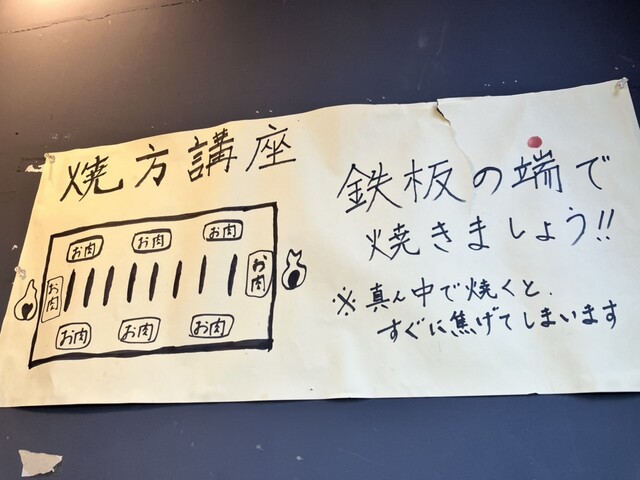 焼方講座
お肉
お肉
お肉
お肉
お肉
お肉
お肉
お肉
鉄板の端で
焼きましょう!!
※真ん中で焼くと、
すぐに焦げてしまいます